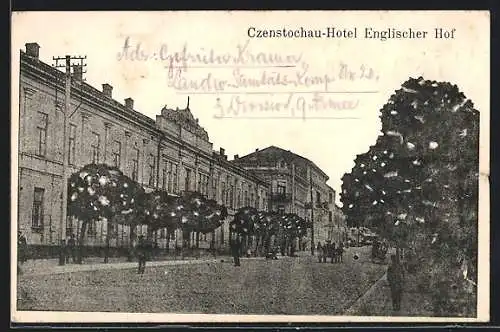 Czenstochau-Hotel Englischer Hof
Adr. Gefreiter Krama,
Landw. Sanitäts-Komp Nr 20.
3 Division, 9 Armee